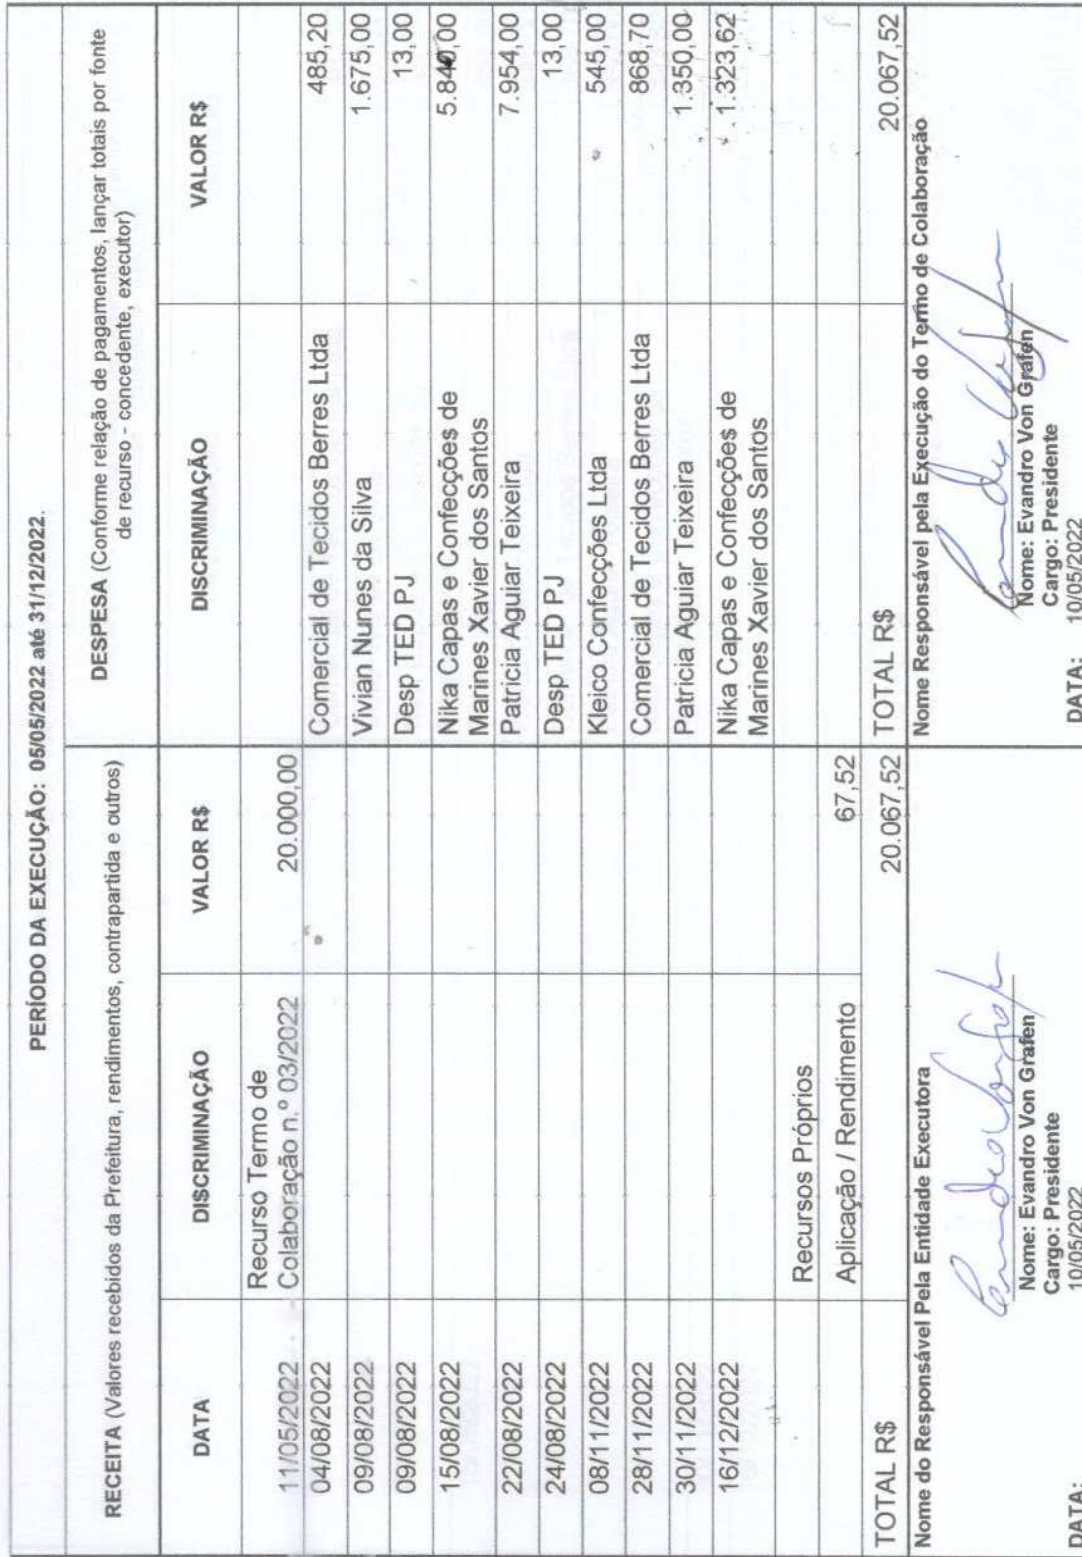 PERÍODO DA EXECUÇÃO: 05/05/2022 até 31/12/2022.
RECEITA (Valores recebidos da Prefeitura, rendimentos, contrapartida e outros)
DESPESA (Conforme relação de pagamentos, lançar totais por fonte
de recurso - concedente, executor)
DATA DISCRIMINAÇÃO VALOR R$ DISCRIMINAÇÃO VALOR R$
Recurso Termo de
11/05/2022 Colaboração n.º 03/2022 20.000,00
04/08/2022 Comercial de Tecidos Berres Ltda 485,20
09/08/2022 Vivian Nunes da Silva 1.675,00
09/08/2022 Desp TED PJ 13,00
15/08/2022 Nika Capas e Confecções de 5.840,00
Marines Xavier dos Santos
22/08/2022 Patricia Aguiar Teixeira 7.954,00
24/08/2022 Desp TED PJ 13,00
08/11/2022 Kleico Confecções Ltda 545,00
28/11/2022 Comercial de Tecidos Berres Ltda 868,70
30/11/2022 Patricia Aguiar Teixeira 1.350,00
16/12/2022 Nika Capas e Confecções de 1.323,62
Marines Xavier dos Santos
Recursos Próprios
Aplicação / Rendimento 67,52
TOTAL R$ 20.067,52 TOTAL R$ 20.067,52
Nome do Responsável Pela Entidade Executora
Nome: Evandro Von Grafen
Cargo: Presidente
DATA: 10/05/2022
Nome Responsável pela Execução do Termo de Colaboração
Nome: Evandro Von Grafen
Cargo: Presidente
DATA: 10/05/2022